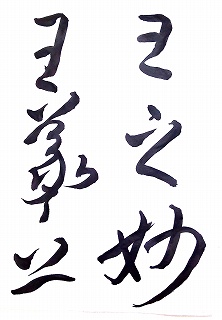 王之妙
王羲之